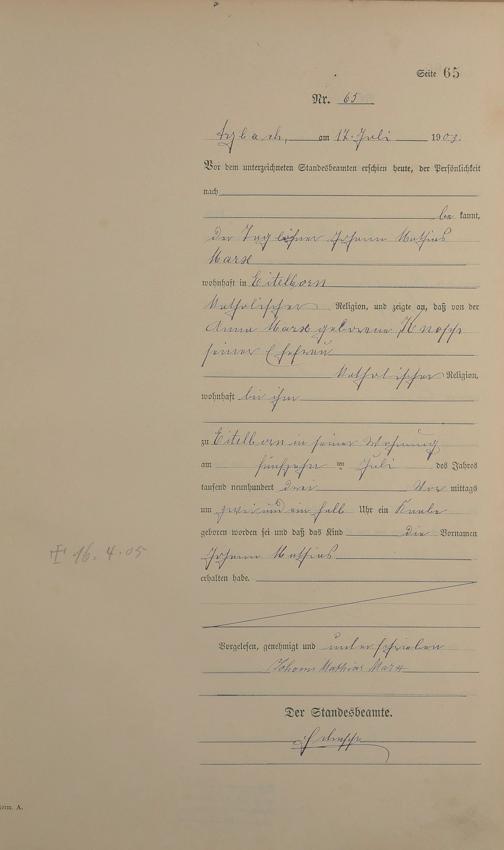 Seite 65
Nr. 65
Arzbach, am 17. Juli 1903.
Vor dem unterzeichneten Standesbeamten erschien heute, der Persönlichkeit
nach
be kannt,
der Taglöhner Johann Mathias
Marx
wohnhaft in Eitelborn
Katholischer Religion, und zeigte an, daß von der
Anna Marx geborene Knopp
seiner Ehefrau
Katholischer Religion,
wohnhaft bei ihm
zu Eitelborn in seiner Wohnung
am fünfzehn ten Juli des Jahres
tausend neunhundert drei Vor mittags
um zwei und ein halb Uhr ein Knabe
geboren worden sei und daß das Kind die Vornamen
Johann Mathias
erhalten habe.
+ 16. 4. 05
Vorgelesen, genehmigt und unterschrieben
Johann Mathias Marx
Der Standesbeamte.